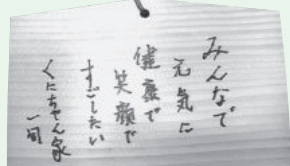 みんなで
元気に
健康で
笑顔で
すごしたい
くにちゃん家
一同